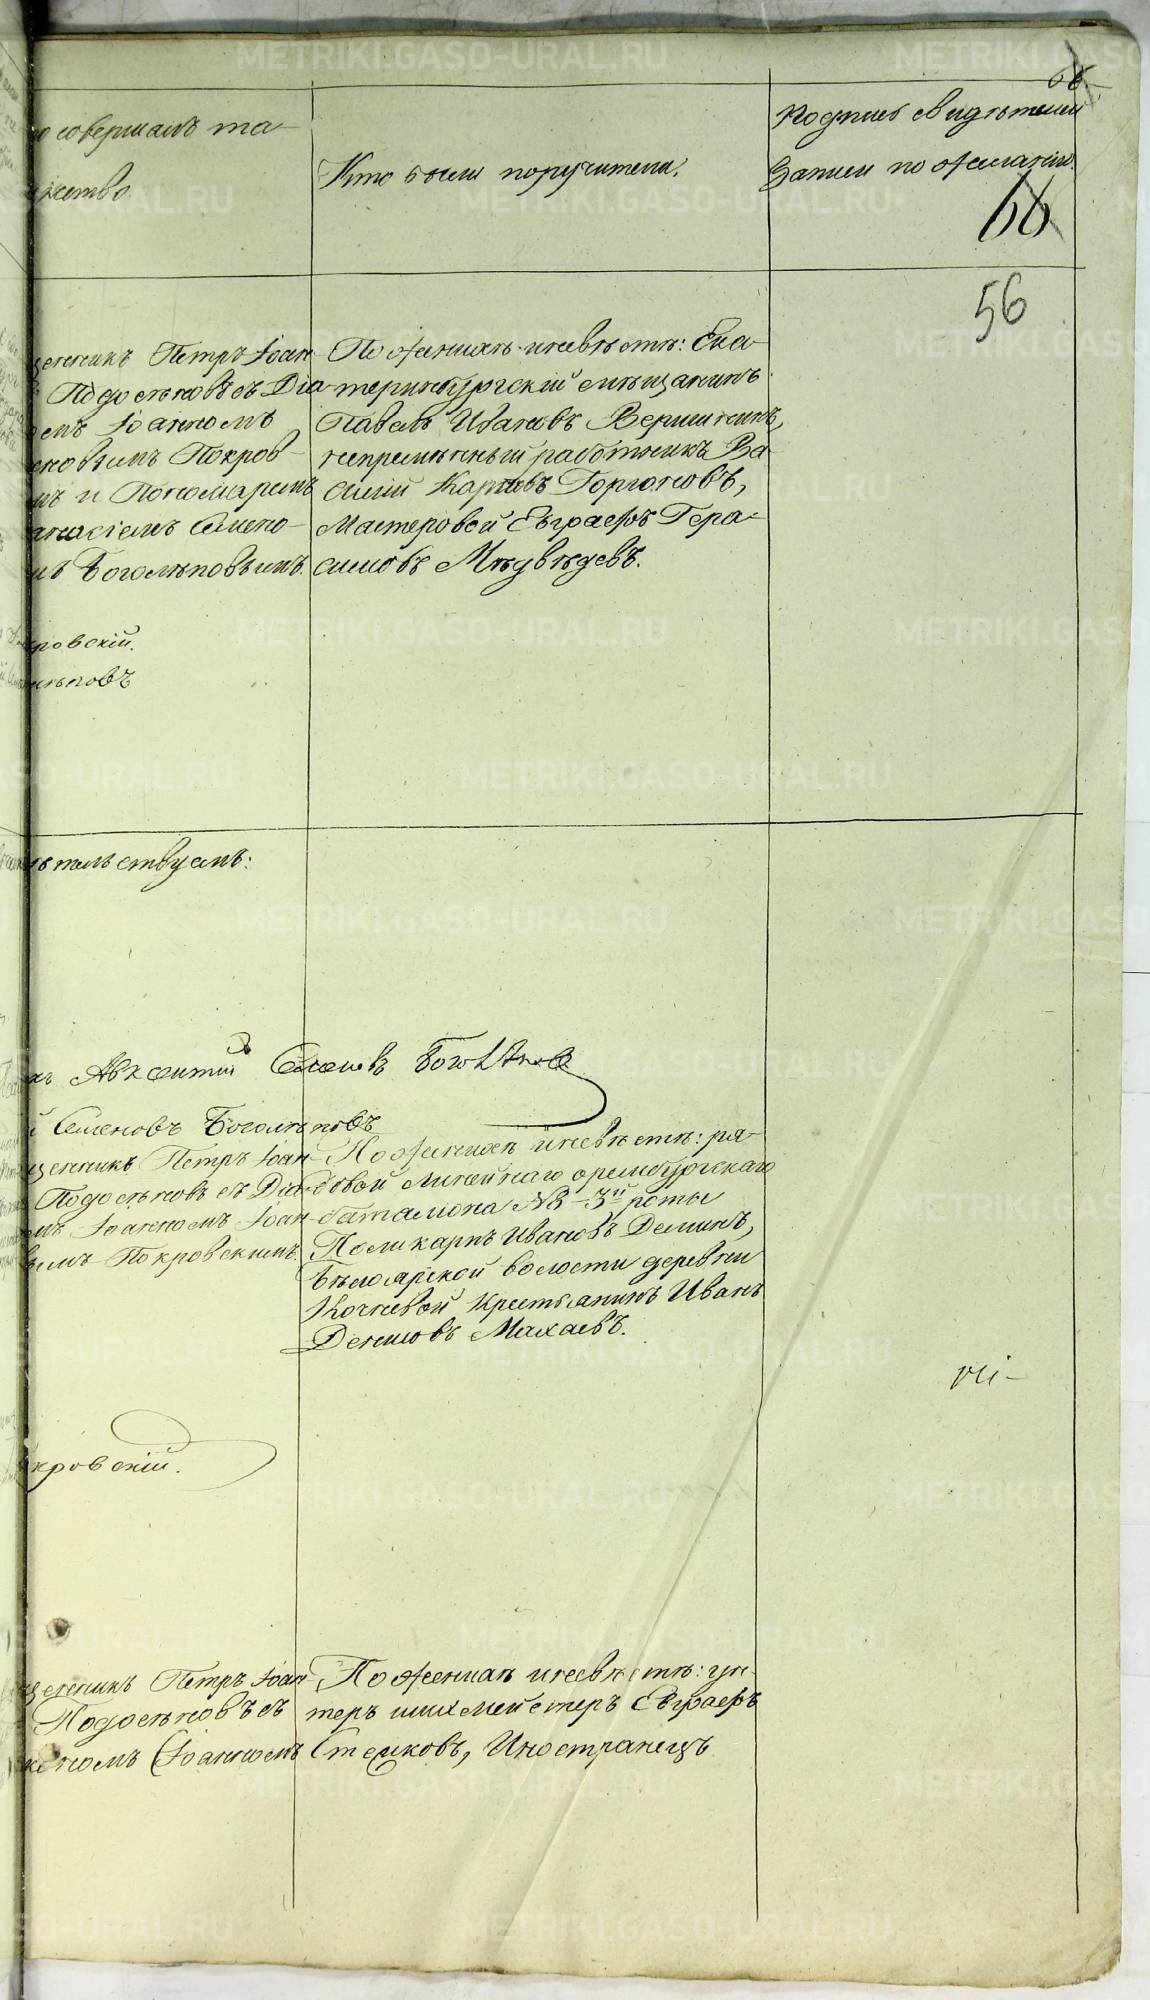 66
56
о совершалъ та-
инство
Кто были поручители.
Подпись свидѣтелей
записи по желанію.
щенникъ Петръ Іоан-
Подосеновъ съ Діа-
емъ Іоанномъ
новымъ Покров-
мъ и Пономаремъ
анасіемъ Семено-
мъ Боголѣповымъ.
По женихѣ и невѣстѣ: Ека-
теринбургскій мѣщанинъ
Павелъ Ивановъ Вершининъ,
непремѣнный работникъ Ва-
силій Карповъ Горгоновъ,
Мастеровой Евграфъ Гера-
симовъ Мѣдвѣдевъ.
кровскій.
лѣповъ
ѣтельствуемъ:
Авксентий Семенов Боголѣпов
й Семеновъ Боголѣповъ
щенникъ Петръ Іоан-
Подосеновъ съ Діа-
мъ Іоанномъ Іоан-
вымъ Покровскимъ.
По женихѣ и невѣстѣ: ря-
довой линейнаго оренбургскаго
баталіона №3 3й роты
Поликарпъ Ивановъ Деминъ,
Бѣлоярской волости деревни
Кочневой крестьянинъ Иванъ
Денисовъ Махаевъ.
кровскій.
щенникъ Петръ Іоан-
Подосеновъ съ
кономъ Іоанномъ
По женихѣ и невѣстѣ: ун-
теръ шихмейстеръ Евграфъ
Стениковъ, Иностранецъ
METRIKI.GASO-URAL.RU